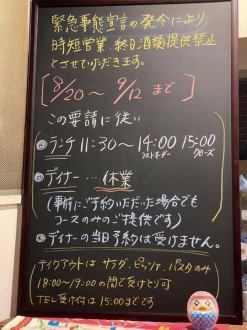 緊急事態宣言の発令により
時短営業、終日酒類提供禁止
とさせていただきます。
[8/20〜9/12 まで]
この要請に従い
ランチ 11:30〜14:00 15:00
ラストオーダー クローズ
ディナー…休業
(事前にご予約いただいた場合でも
コースのみのご提供です)
ディナーの当日予約は受けません。
テイクアウトは、サラダ、ピッツァ、パスタのみ
18:00〜19:00の間で受けとり可
TEL受け付は15:00までです